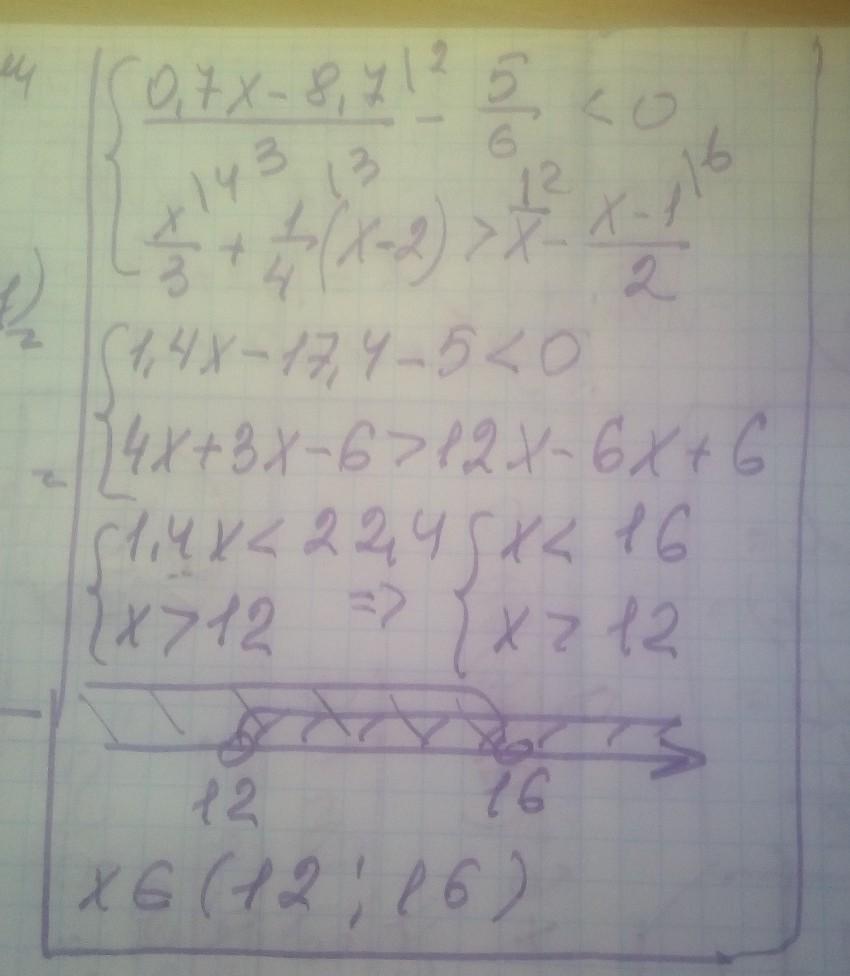 { (0,7x - 8,7)/3 \2 - 5/6 < 0
x/3 \4 + 1/4 \3 (x-2) > x \12 - (x-1)/2 \6
{ 1,4x - 17,4 - 5 < 0
4x + 3x - 6 > 12x - 6x + 6
{ 1,4x < 22,4 { x < 16
x > 12 => x > 12
12 16
x ∈ (12 ; 16)